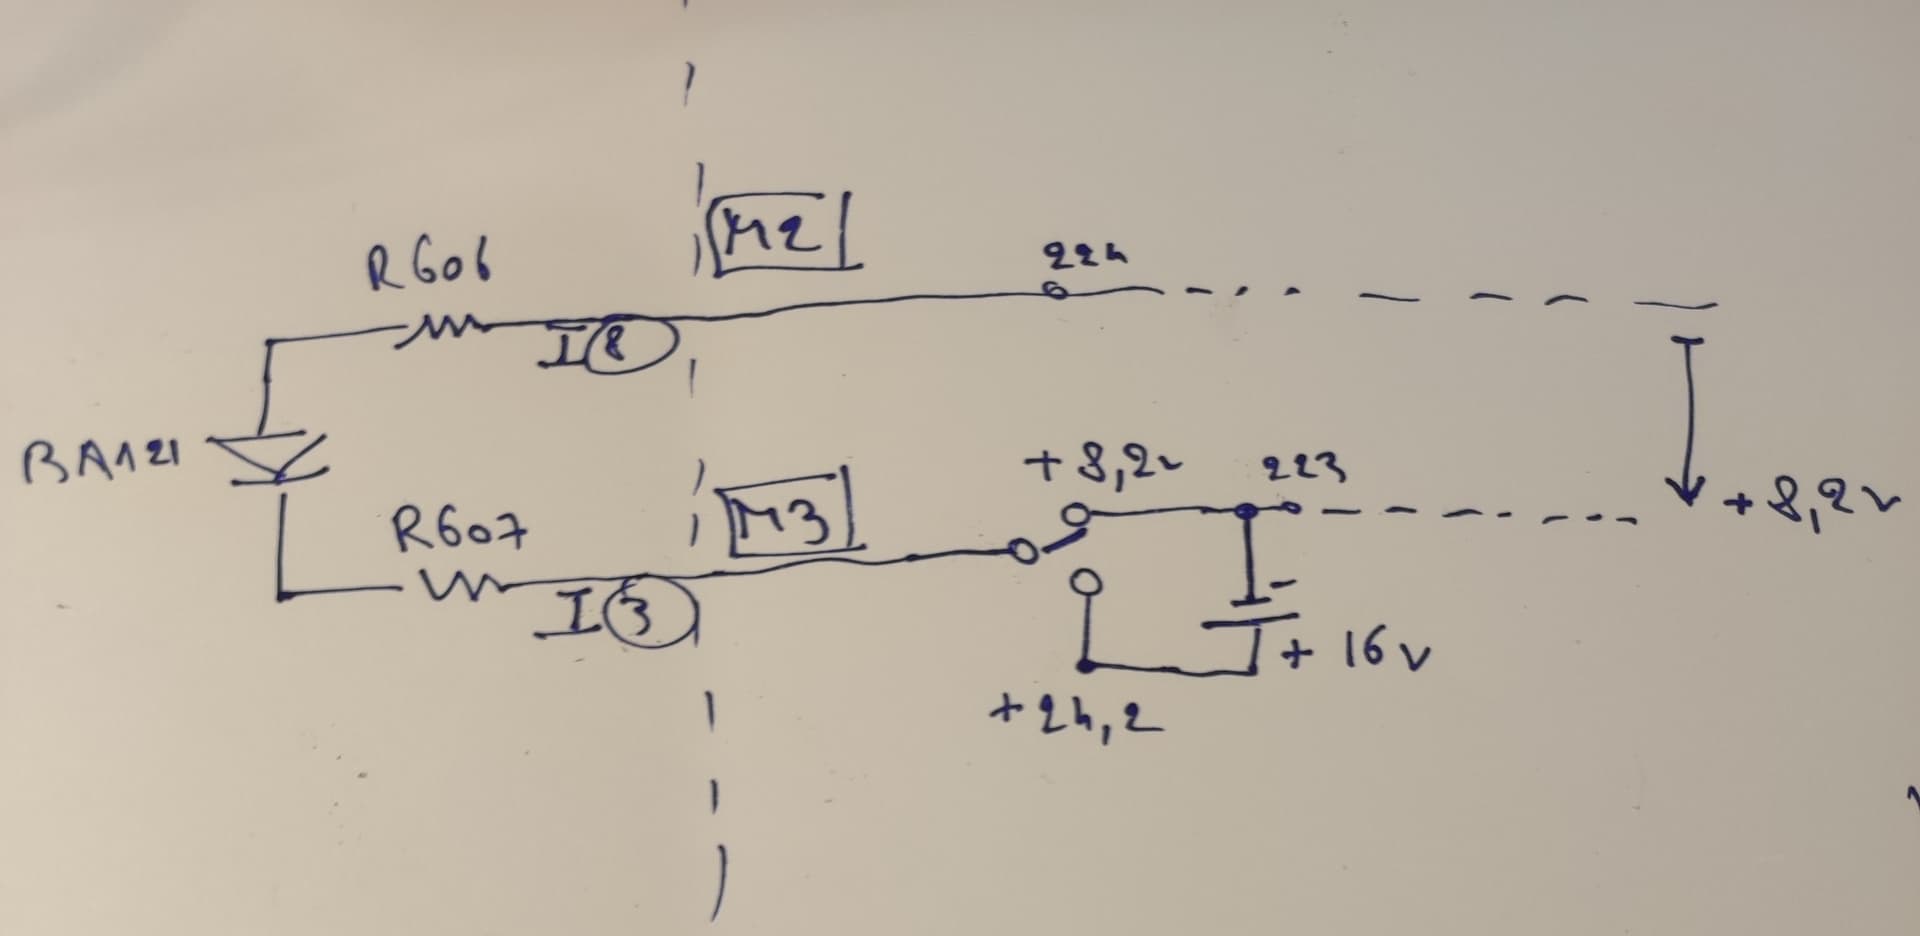 M2
R606
224
I 8
BA121
+ 8,2v
223
+ 8,2v
M3
R607
I 3
-
+ 16 v
+ 24,2